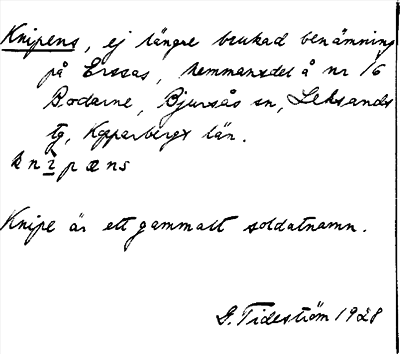 Knipens, ej längre brukad benämning
på Erssas, hemmansdel å nr 16
Bodarne, Bjursås sn, Leksands
tg, Kopparbergs län.
knipæns
Knipe är ett gammalt soldatnamn.
G. Tideström 1928